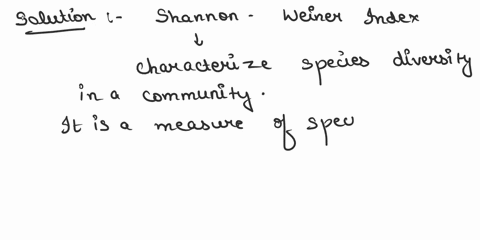 Solution :- Shannon - Weiner Index
↓
characterize species diversity
in a community.
It is a measure of spec